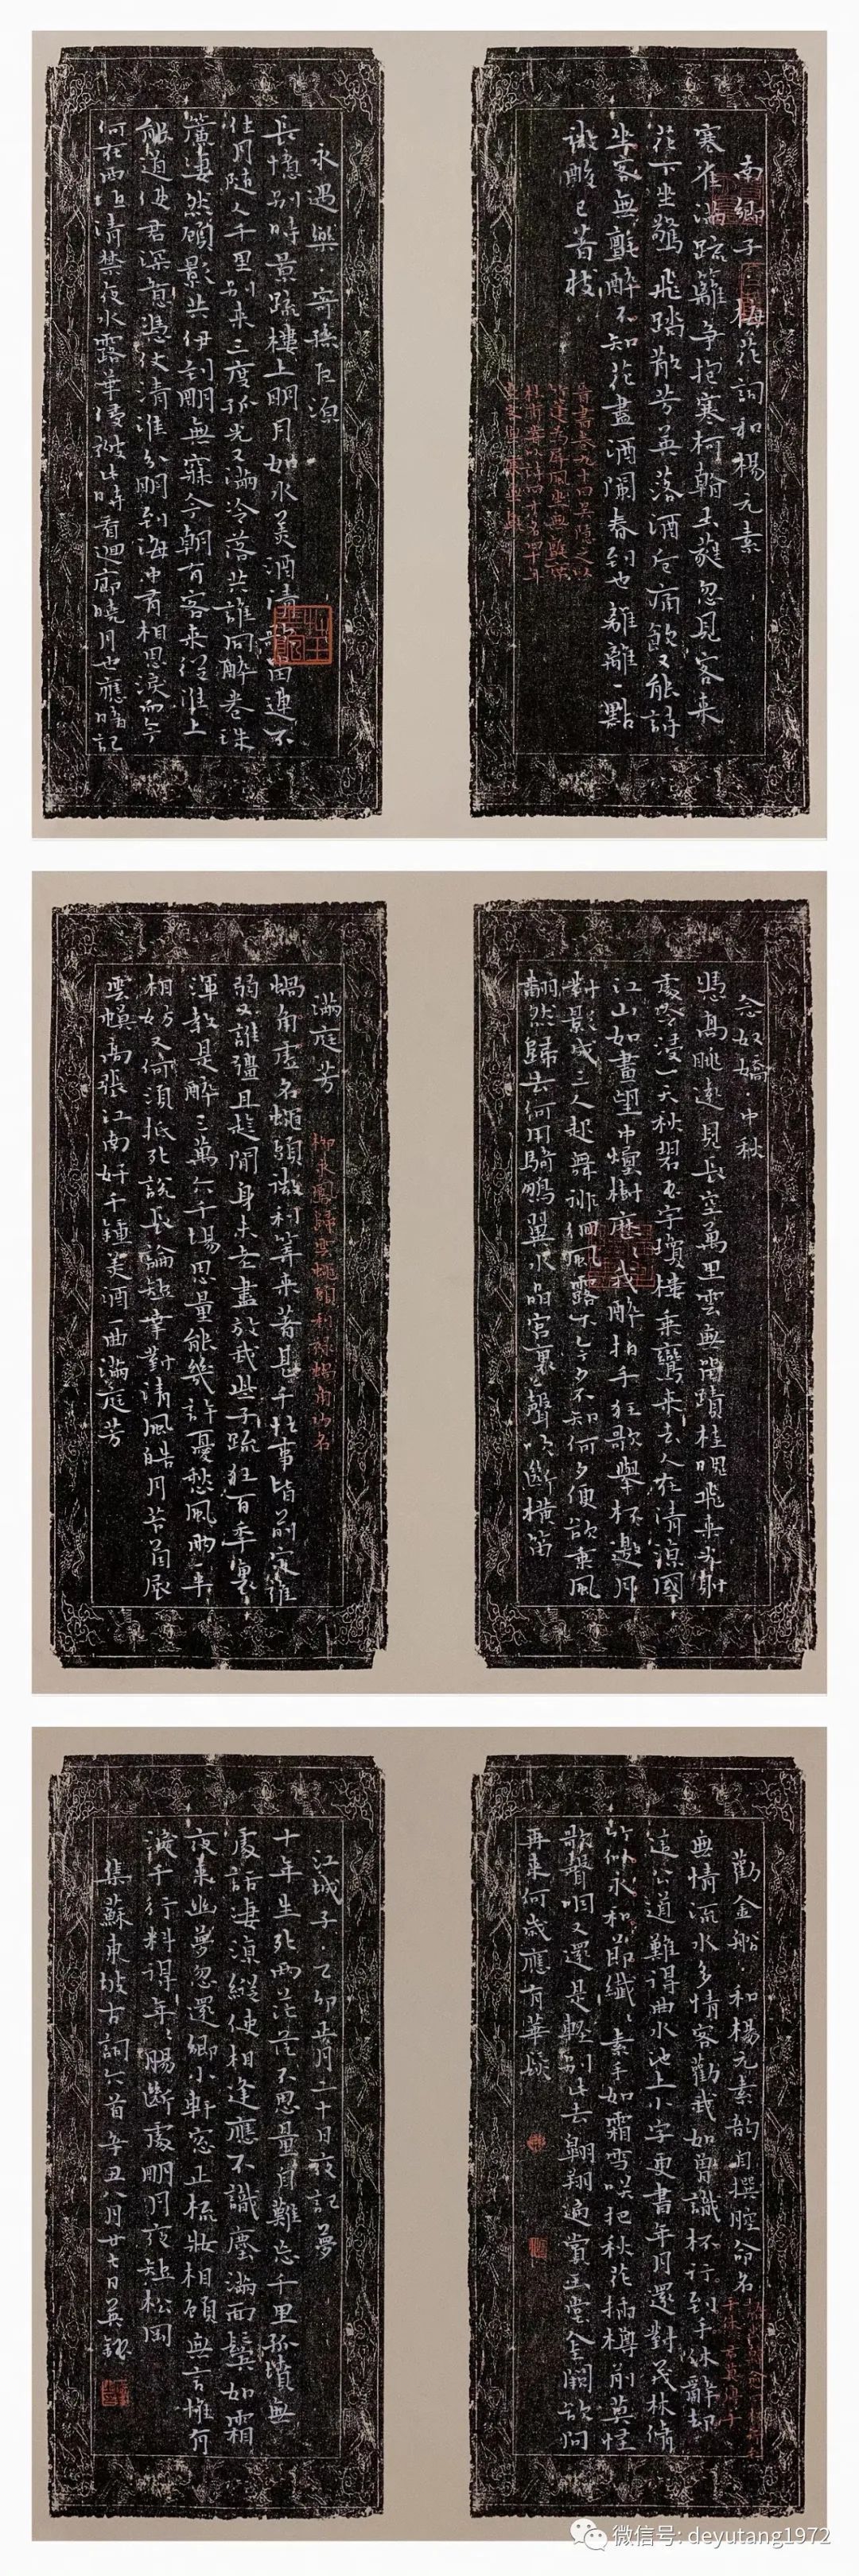 南鄉子·梅花詞和楊元素
寒雀滿疏籬爭抱寒柯看玉蕤忽見客來
花下坐驚飛踏散芳英落酒卮痛飲又能詩
坐客無氈醉不知花盡酒闌春到也離離一點
微酸已著枝
永遇樂·寄孫巨源
長憶別時景疏樓上明月如水美酒清歌留連不
住月隨人千里別來三度孤光又滿冷落共誰同醉卷珠
簾淒然顧影共伊到明無寐今朝有客來從淮上
能道使君深意憑仗清淮分明到海中有相思淚而今
何在西垣清禁夜永露華侵被此時看迴廊曉月也應暗記
念奴嬌·中秋
憑高眺遠見長空萬里雲無留蹟桂魄飛來光射
處冷浸一天秋碧玉宇瓊樓乘鸞來去人在清涼國
江山如畫望中煙樹歷歷我醉拍手狂歌舉杯邀月
對影成三人起舞徘徊風露下今夕不知何夕便欲乘風
翻然歸去何用騎鵬翼水晶宮裏一聲吹斷橫笛
滿庭芳
柳永鳳歸雲蠅頭利祿蝸角功名
蝸角虛名蠅頭微利算來著甚干忙事皆前定誰
弱又誰彊且趁閒身未老盡放我些子疏狂百年裏
渾教是醉三萬六千場思量能幾許憂愁風雨一半
相妨又何須抵死說長論短幸對清風皓月苔茵展
雲幙高張江南好千鍾美酒一曲滿庭芳
勸金船·和楊元素韵自撰腔命名
無情流水多情客勸我如曾識杯行到手休辭却
這公道難得曲水池上小字更書年月還對茂林脩
竹似永和節纖纖素手如霜雪笑把秋花插樽前莫怪
歌聲咽又還是輕別此去翱翔遍賞玉堂金闕欲問
再來何歲應有華髮
江城子·乙卯正月二十日夜記夢
十年生死兩茫茫不思量自難忘千里孤墳無
處話淒涼縱使相逢應不識塵滿面鬢如霜
夜來幽夢忽還鄉小軒窓正梳妝相顧無言惟有
淚千行料得年年腸斷處明月夜短松岡
集蘇東坡古詞六首辛丑八月廿七日英
微信号: deyutang1972